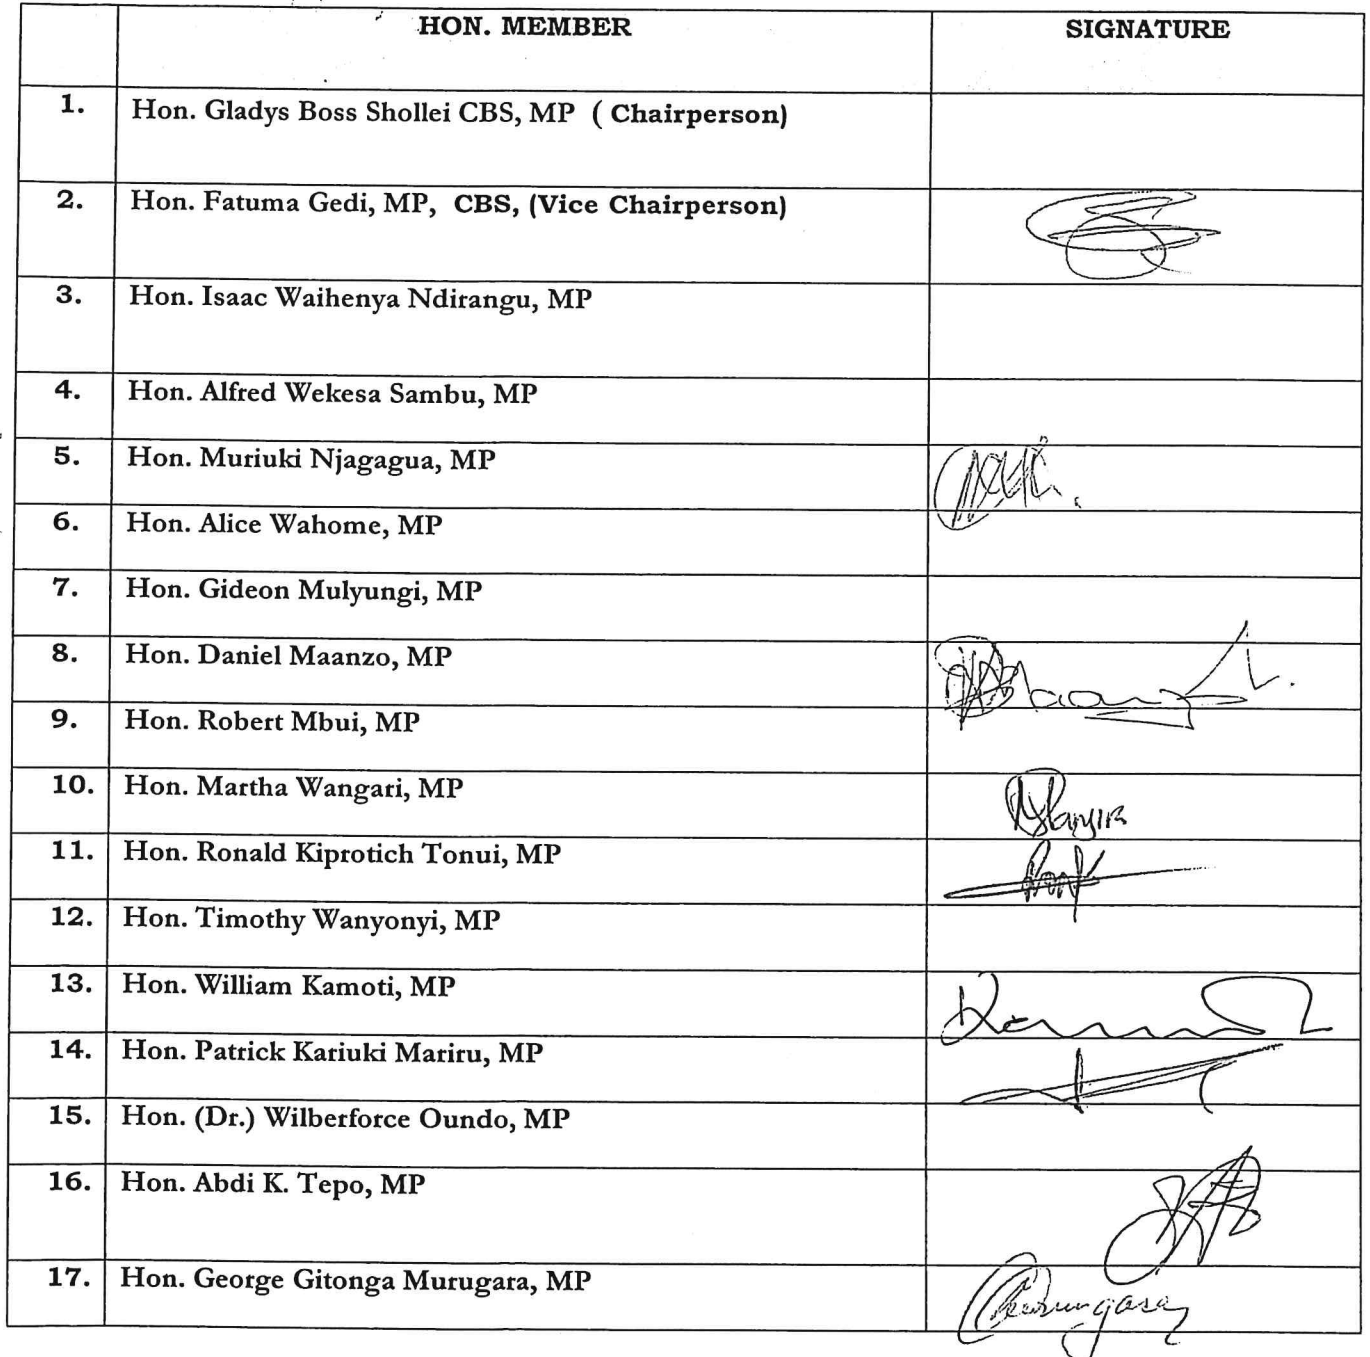 HON. MEMBER SIGNATURE
1. Hon. Gladys Boss Shollei CBS, MP ( Chairperson)
2. Hon. Fatuma Gedi, MP, CBS, (Vice Chairperson)
3. Hon. Isaac Waihenya Ndirangu, MP
4. Hon. Alfred Wekesa Sambu, MP
5. Hon. Muriuki Njagagua, MP
6. Hon. Alice Wahome, MP
7. Hon. Gideon Mulyungi, MP
8. Hon. Daniel Maanzo, MP
9. Hon. Robert Mbui, MP
10. Hon. Martha Wangari, MP
11. Hon. Ronald Kiprotich Tonui, MP
12. Hon. Timothy Wanyonyi, MP
13. Hon. William Kamoti, MP
14. Hon. Patrick Kariuki Mariru, MP
15. Hon. (Dr.) Wilberforce Oundo, MP
16. Hon. Abdi K. Tepo, MP
17. Hon. George Gitonga Murugara, MP